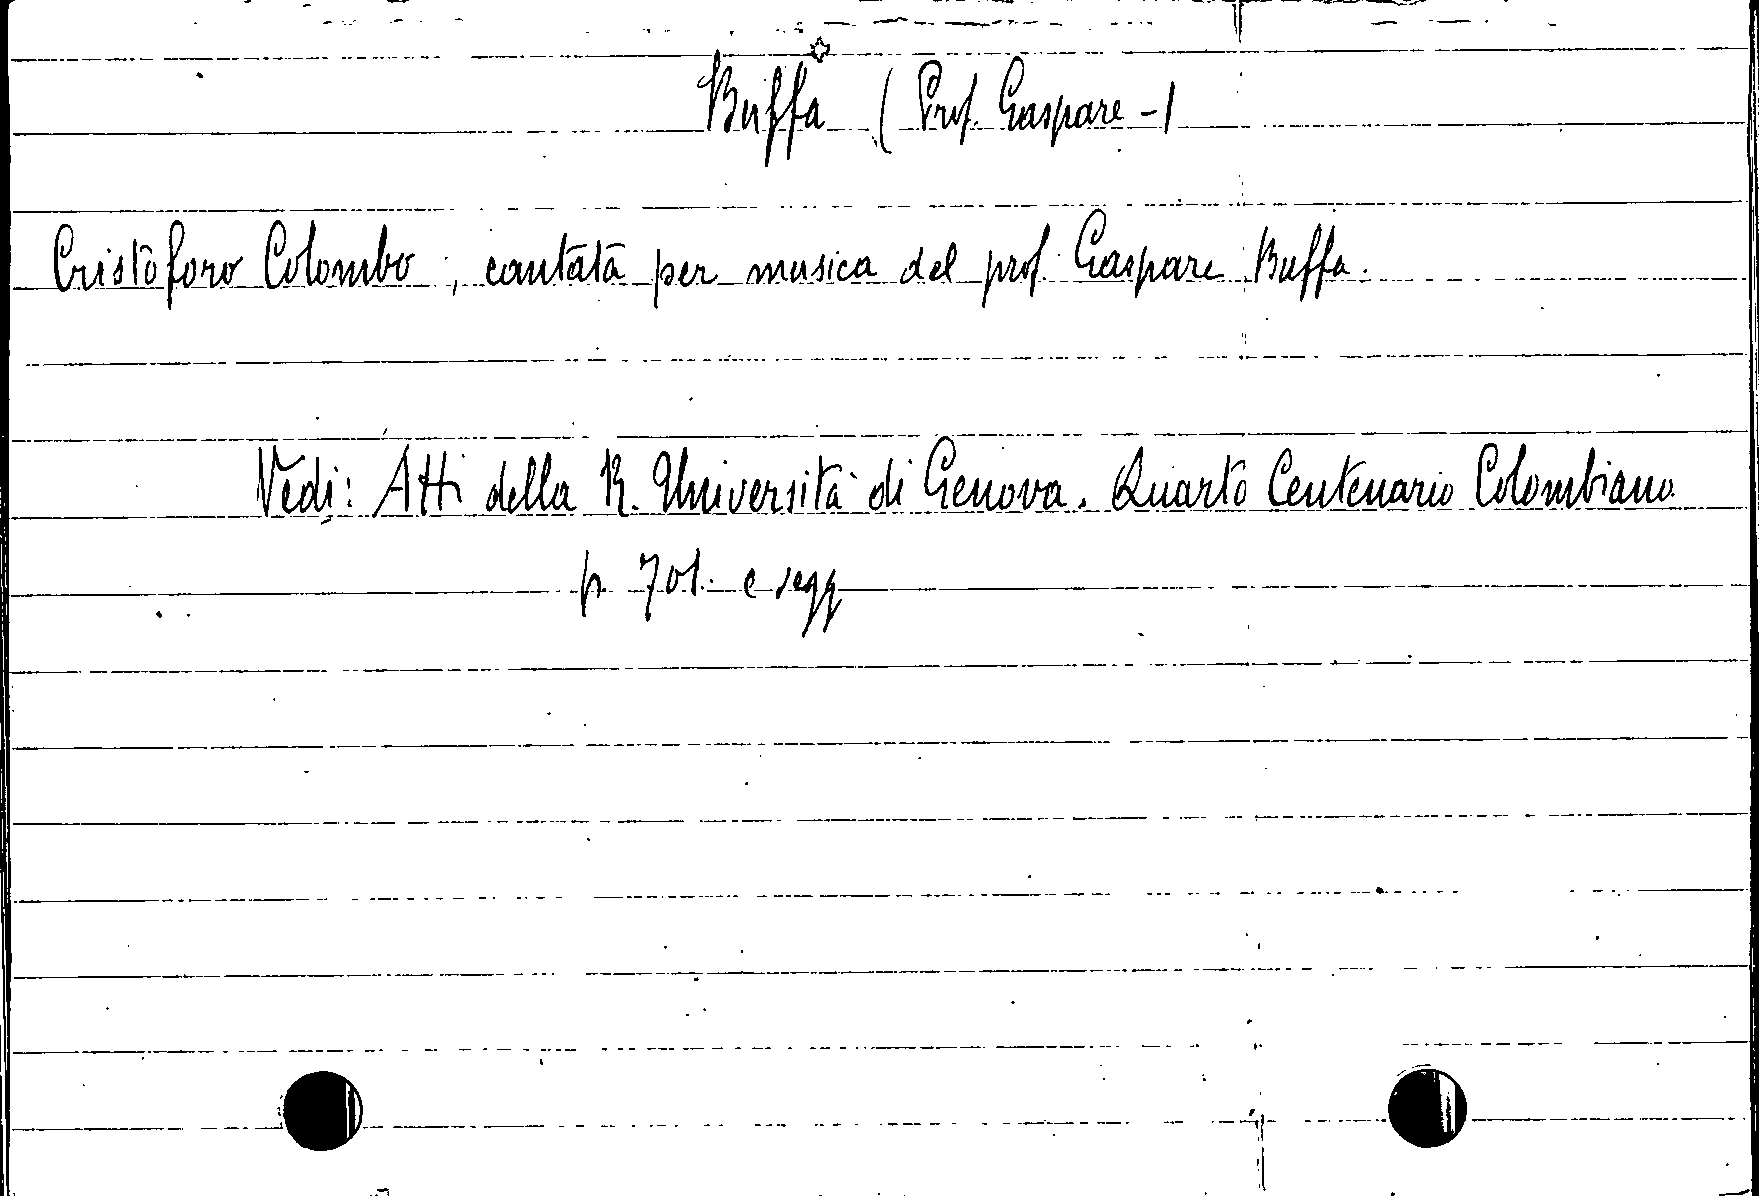 Buffa ☆ (Prof. Gaspare -)
Cristoforo Colombo ; cantata per musica del prof. Gaspare Buffa.
Vedi: Atti della R. Università di Genova. Quarto Centenario Colombiano
p. 701. e segg